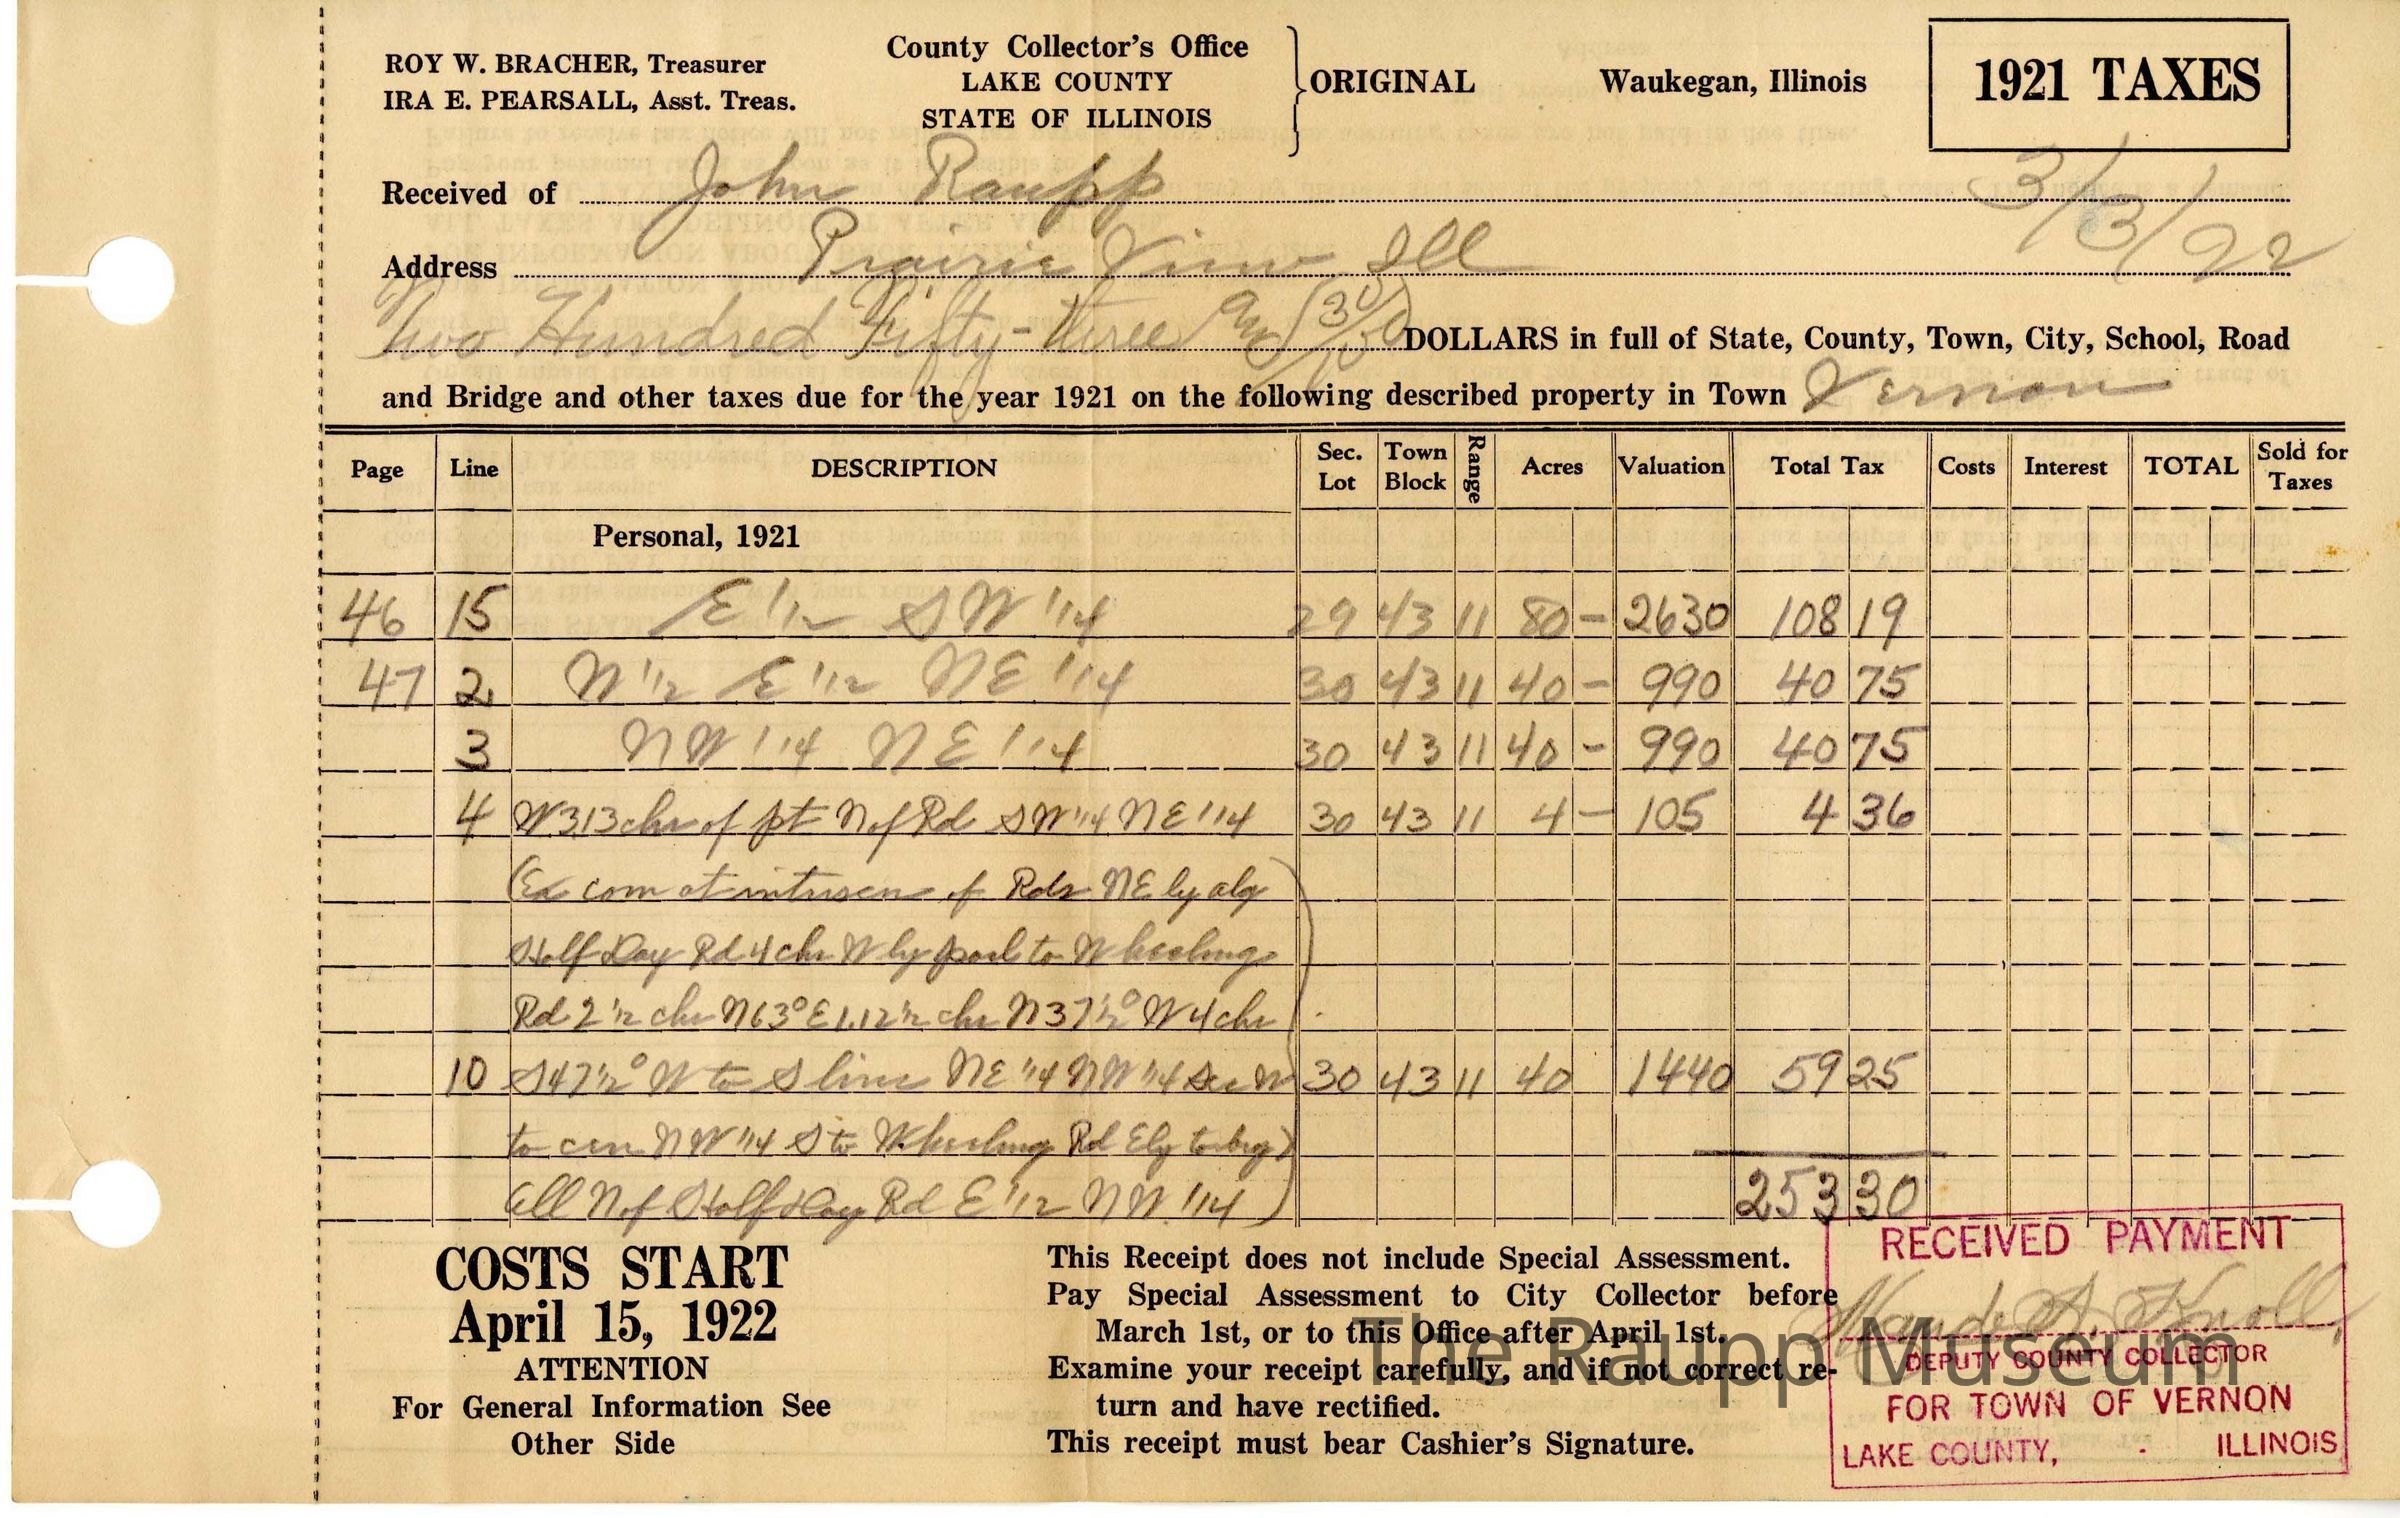 ROY W. BRACHER, Treasurer
IRA E. PEARSALL, Asst. Treas.
County Collector's Office
LAKE COUNTY
STATE OF ILLINOIS
ORIGINAL
Waukegan, Illinois
1921 TAXES
3/3/22
Received of John Raupp
Address Prairie View Ill
Two Hundred Fifty-three and 30/100 DOLLARS in full of State, County, Town, City, School, Road
and Bridge and other taxes due for the year 1921 on the following described property in Town Vernon
Page Line DESCRIPTION Sec. Lot Town Block Range Acres Valuation Total Tax Costs Interest TOTAL Sold for Taxes
Personal, 1921
46 15 E 1/2 SW 1/4 29 43 11 80 - 2630 108 19
47 2 N 1/2 E 1/2 NE 1/4 30 43 11 40 - 990 40 75
3 NW 1/4 NE 1/4 30 43 11 40 - 990 40 75
4 W 313 chs of pt N of Rd SW 1/4 NE 1/4 30 43 11 4 - 105 4 36
(Ex com at intersen of Rds NE ly alg
Half Day Rd 4 chs W ly parl to Wheeling
Rd 2 1/2 chs N 63° E 1.12 1/2 chs N 37 1/2° W 4 chs
10 S 47 1/2° W to S line NE 1/4 NW 1/4 Sec W 30 43 11 40 1440 59 25
to cen NW 1/4 S to Wheeling Rd Ely to beg)
All N of Half Day Rd E 1/2 NW 1/4
253 30
COSTS START
April 15, 1922
ATTENTION
For General Information See
Other Side
This Receipt does not include Special Assessment.
Pay Special Assessment to City Collector before
March 1st, or to this Office after April 1st.
Examine your receipt carefully, and if not correct re-
turn and have rectified.
This receipt must bear Cashier's Signature.
RECEIVED PAYMENT
Maude A. Knoll,
DEPUTY COUNTY COLLECTOR
FOR TOWN OF VERNON
LAKE COUNTY, ILLINOIS
The Raupp Museum